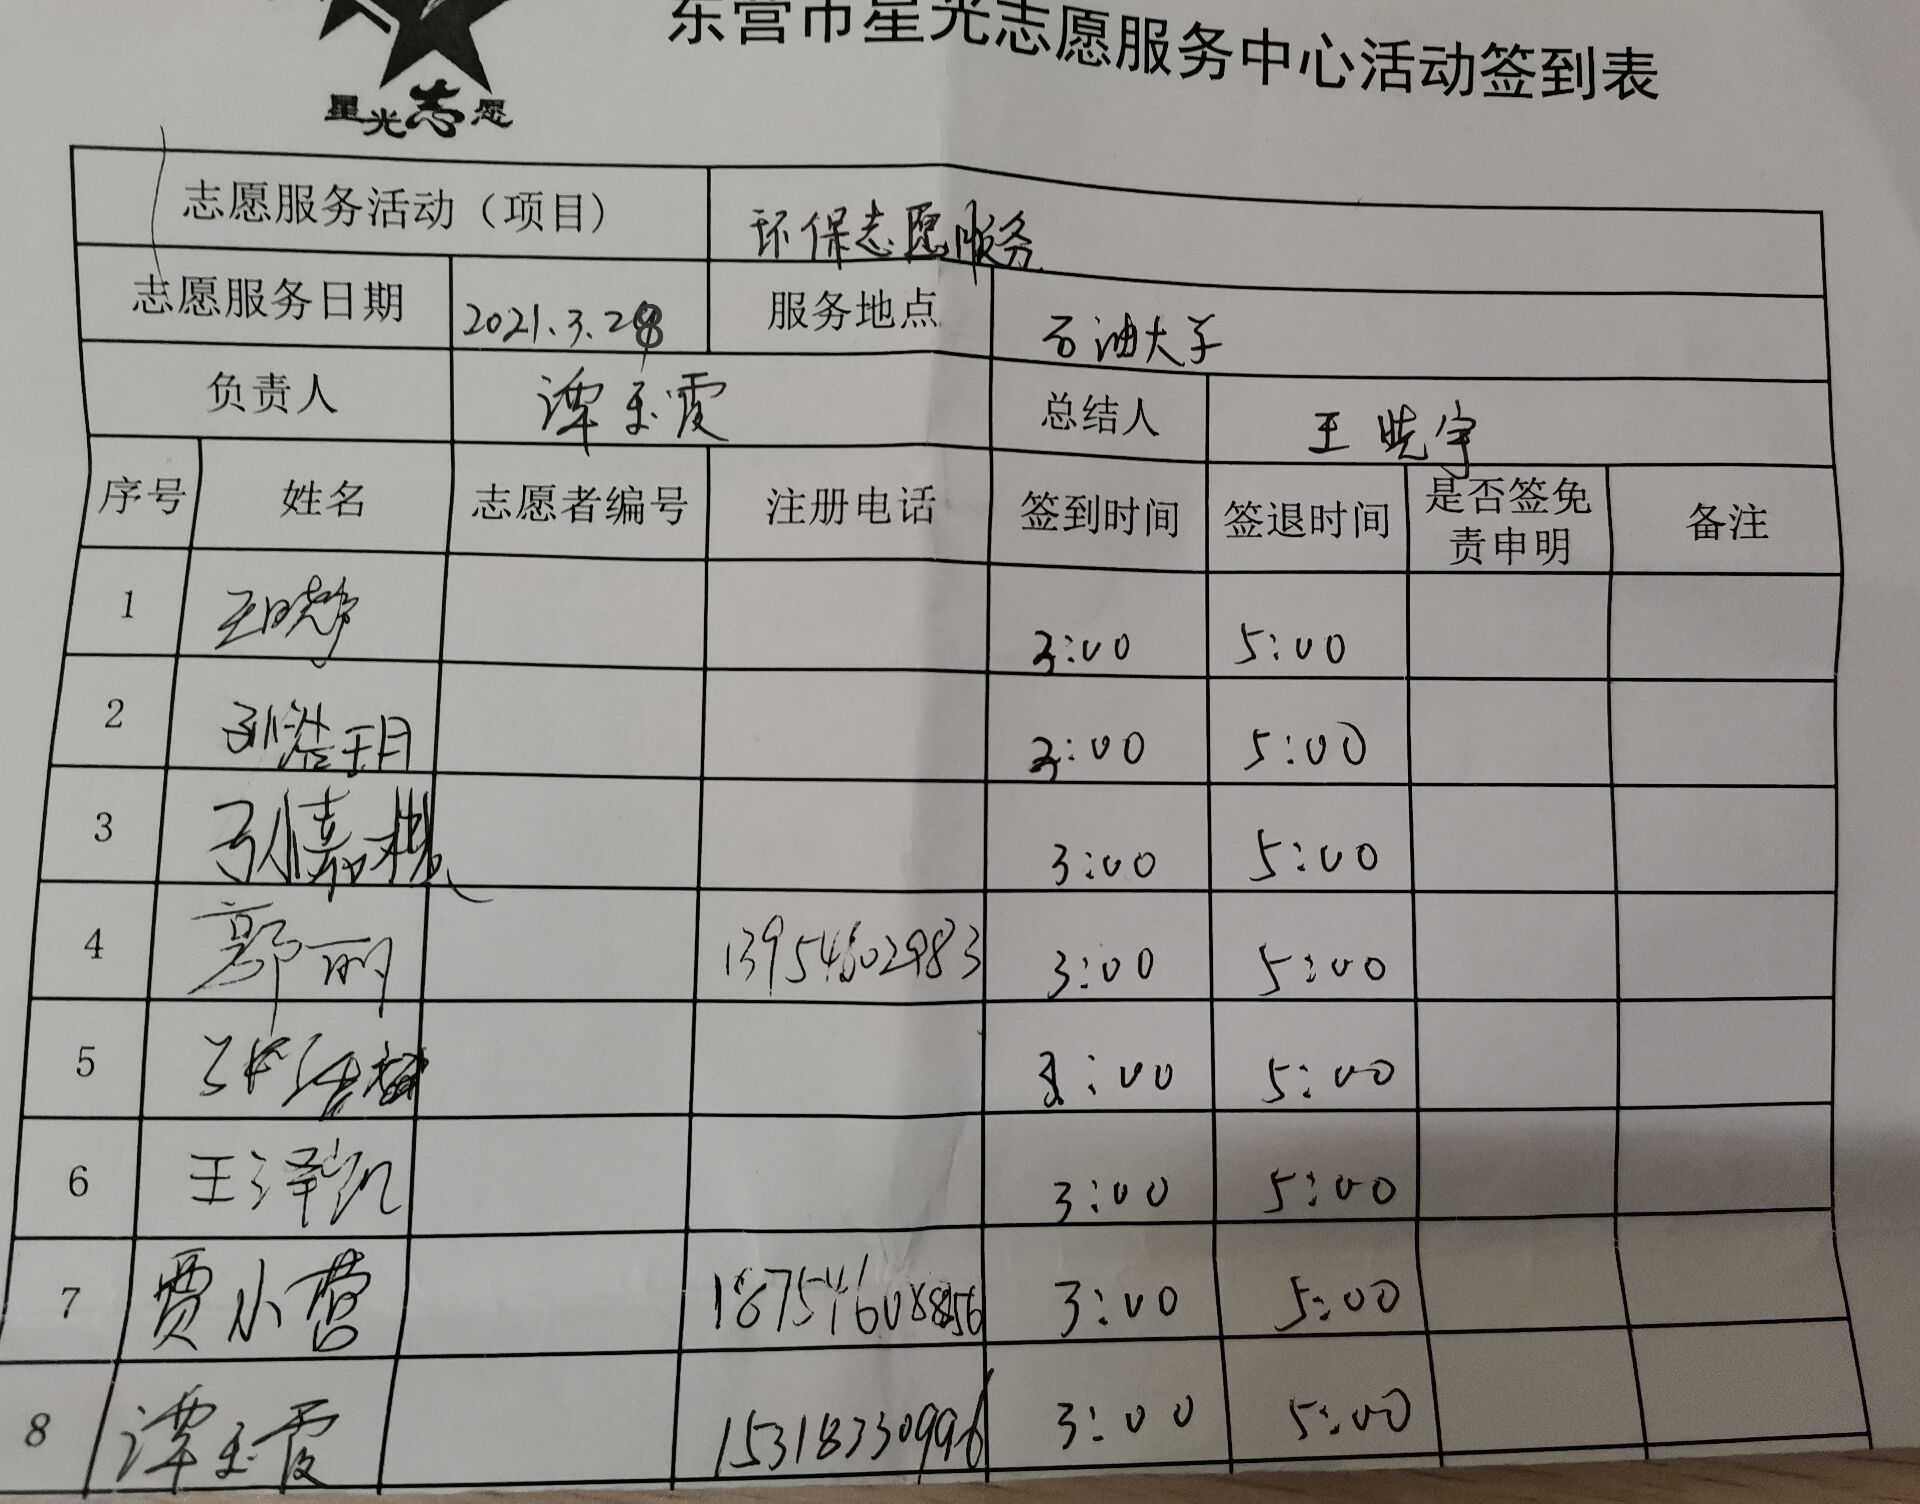 东营市星光志愿服务中心活动签到表
星光志愿
志愿服务活动（项目） 环保志愿服务
志愿服务日期 2021.3.28 服务地点 石油大学
负责人 谭玉霞 总结人 王晓宇
序号 姓名 志愿者编号 注册电话 签到时间 签退时间 是否签免责申明 备注
1 王晓宇 3:00 5:00
2 孙浩玥 3:00 5:00
3 孙嘉楸 3:00 5:00
4 郭丽 13954602983 3:00 5:00
5 3:00 5:00
6 王泽凯 3:00 5:00
7 贾小营 3:00 5:00
8 谭玉霞 15318330996 3:00 5:00